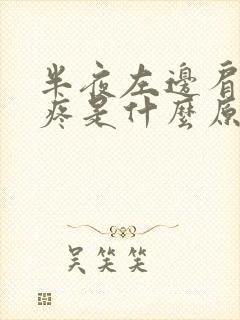 半夜左邊肩
疼是什麼原
吴笑笑